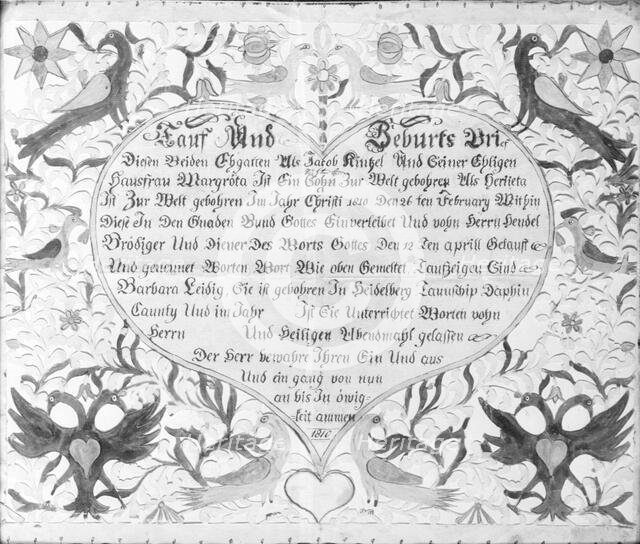 Tauf Und Geburts Brief
Diesen Beiden Ehgatten Als Jacob Kintzel Und Seiner Ehligen
Hausfrau Margröta Ist Ein Sohn Zur Welt gebohren Als
Ist Zur Welt gebohren Im Jahr Christi 1810 Den 26 ten February Mithin
Diese In Den Gnaden Bund Gottes Einverleibet Und vohn Herrn Hendel
Brödiger Und Diener Des Worts Gottes Den 12 ten aprill Getauft
Und genennet Worten Wort Wie oben Gemeltet, Taufzeigen Sind
Barbara Leidig, Sie ist gebohren In Heidelberg Taunschip Daphin
Caunty Und im Jahr Ist Sie Unterrichtet Worten vohn
Herrn Und Heiligen Abendmahl gelassen
Der Herr bewahre Ihren Ein Und aus
Und ein gang von nun
an bis In öwig-
keit ammen
1810
heritage